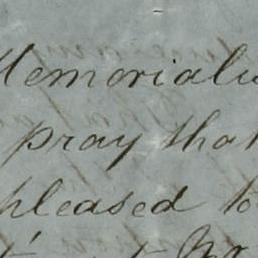 Memorialis
pray that
pleased to